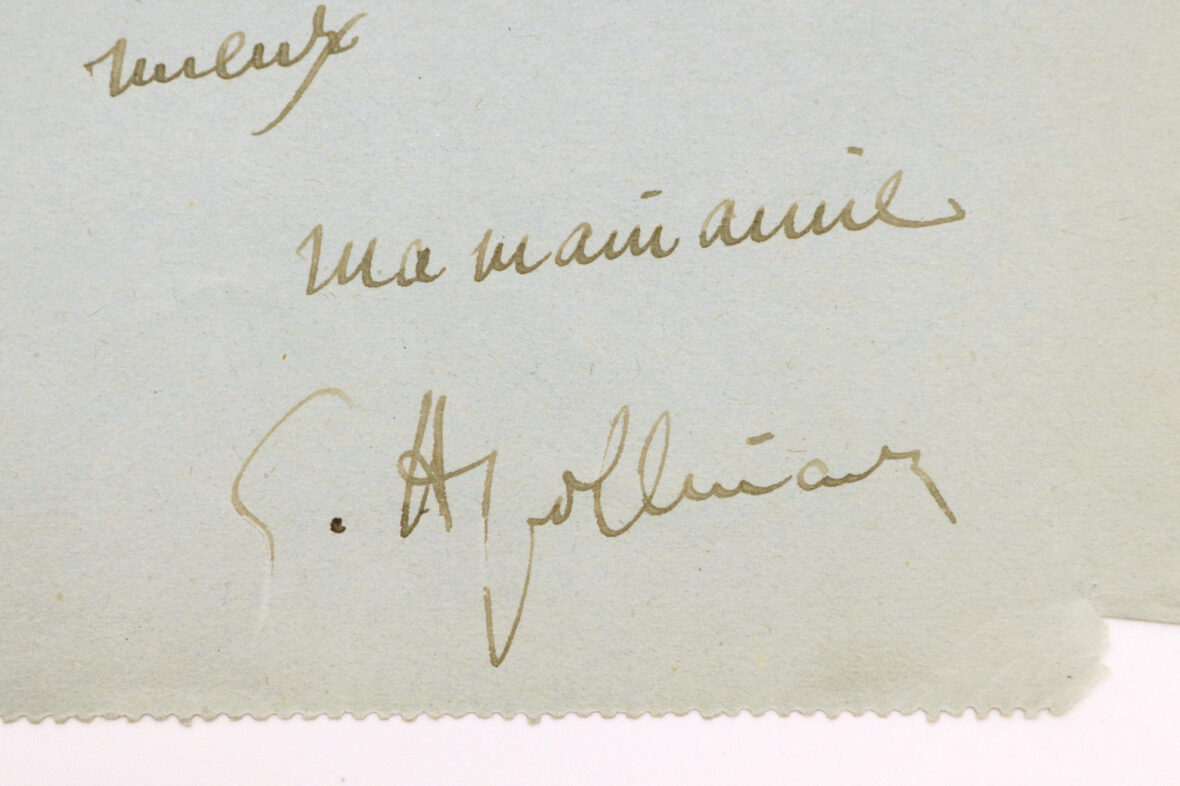 mieux
Ma main amie
G. Apollinaire